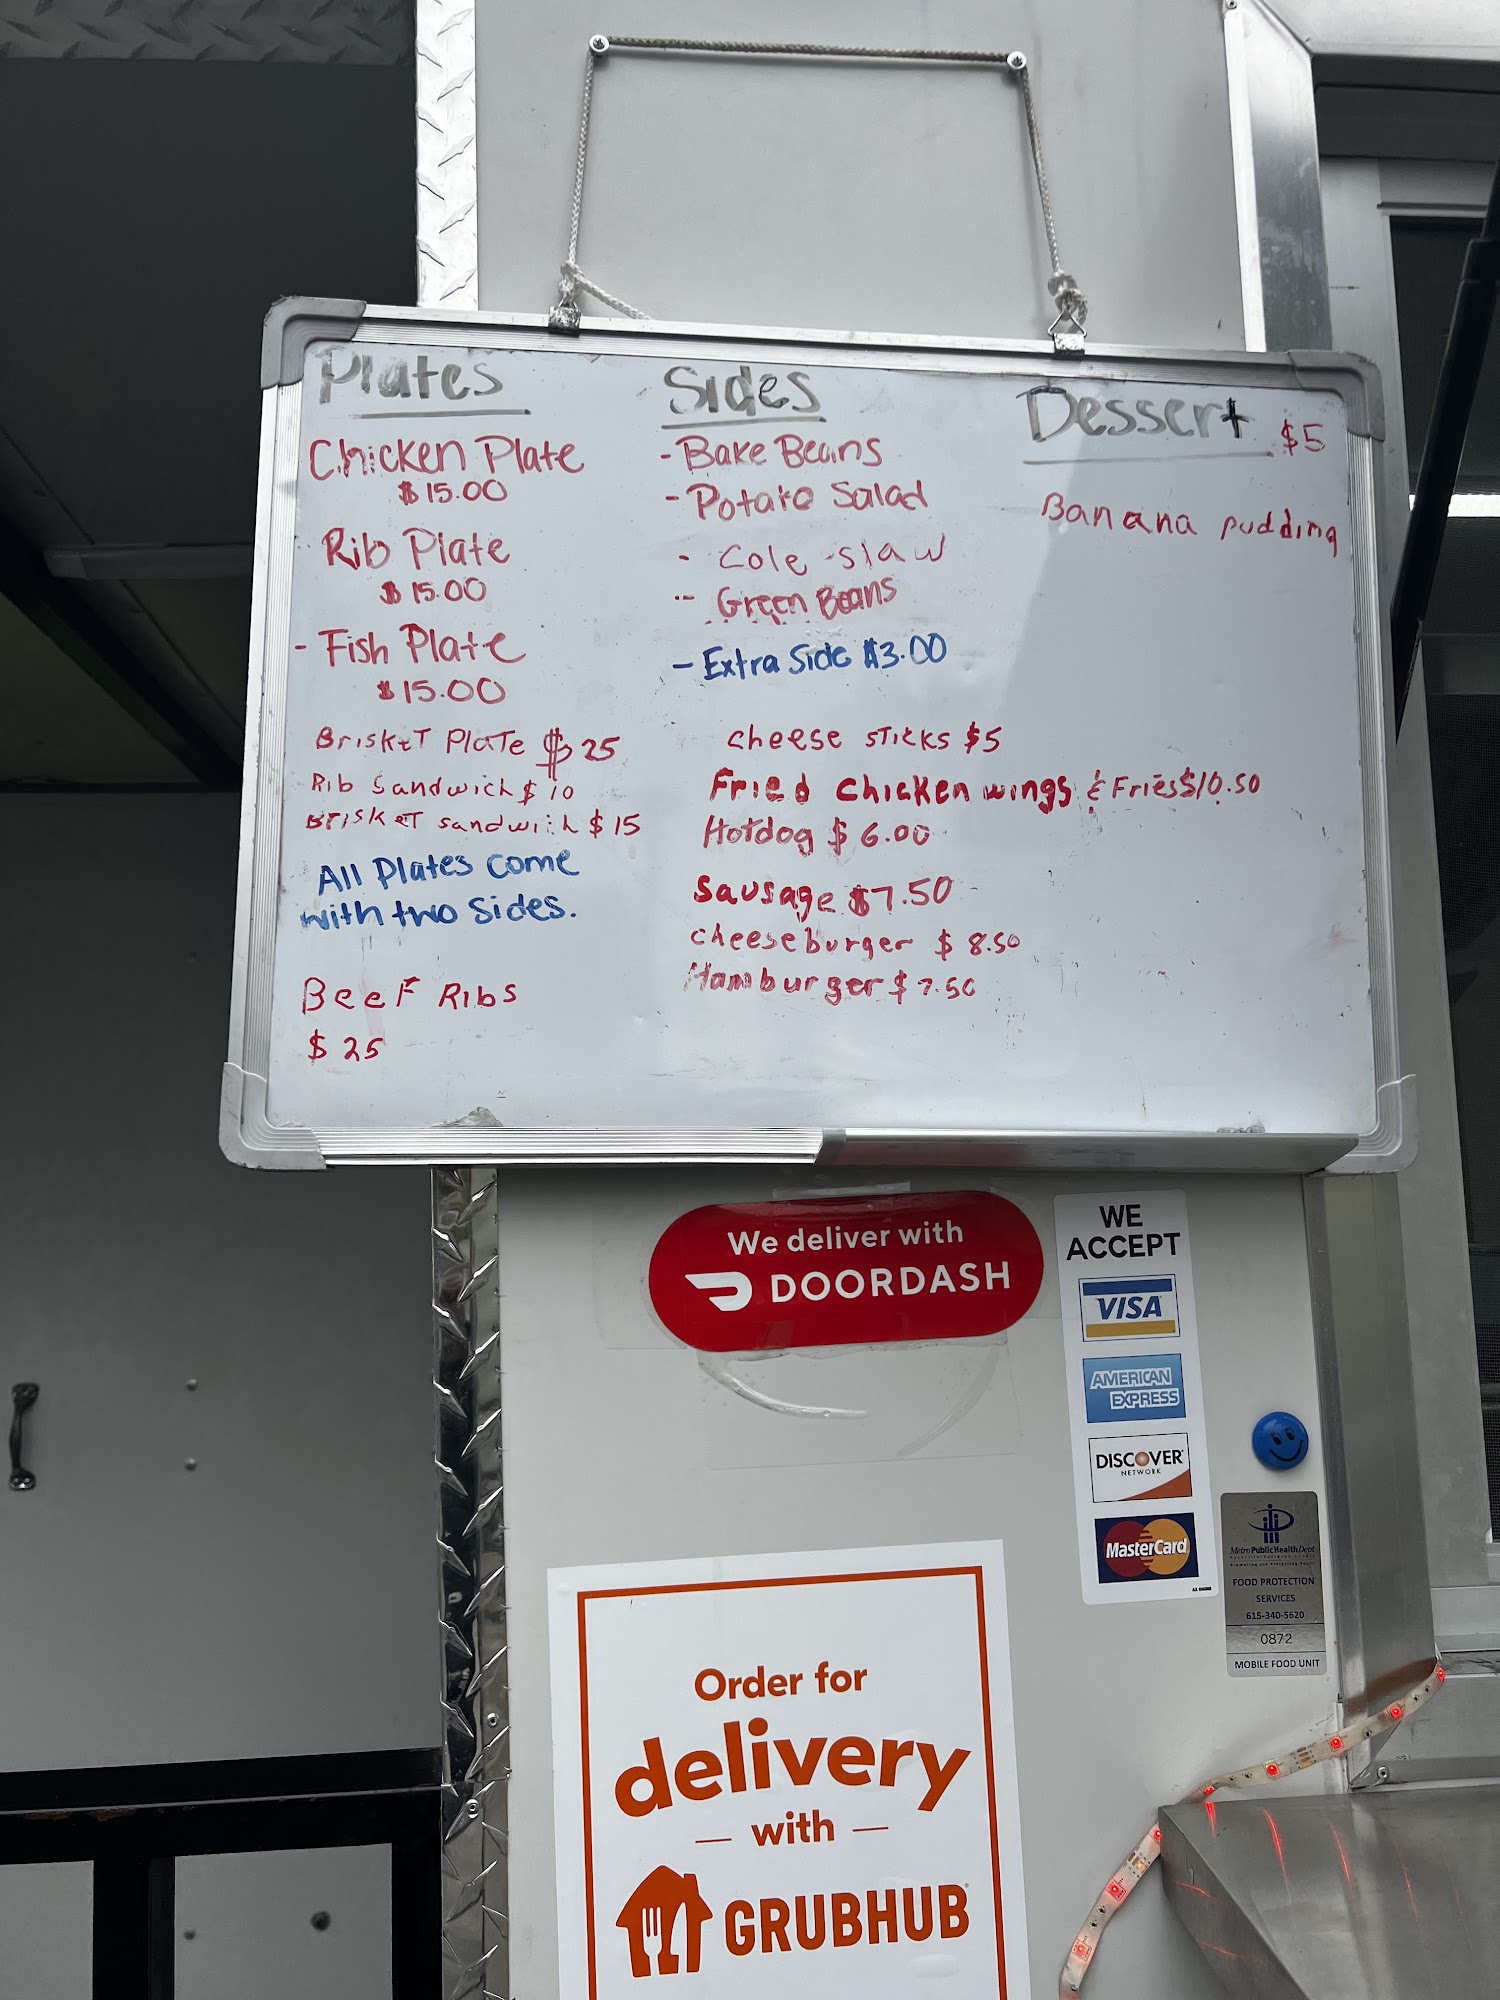 Plates
Chicken Plate
$15.00
Rib Plate
$15.00
- Fish Plate
$15.00
Brisket Plate $25
Rib Sandwich $10
Brisket sandwich $15
All Plates come
with two sides.
Beef Ribs
$25
Sides
- Bake Beans
- Potato Salad
- Cole slaw
- Green Beans
- Extra Side $3.00
cheese sticks $5
Fried chicken wings & Fries $10.50
Hotdog $6.00
Sausage $7.50
cheeseburger $8.50
Hamburger $7.50
Dessert $5
Banana pudding
We deliver with
DOORDASH
WE
ACCEPT
VISA
AMERICAN
EXPRESS
DISCOVER
NETWORK
MasterCard
Metro Public Health Dept
FOOD PROTECTION
SERVICES
615-340-5620
0872
MOBILE FOOD UNIT
Order for
delivery
with
GRUBHUB